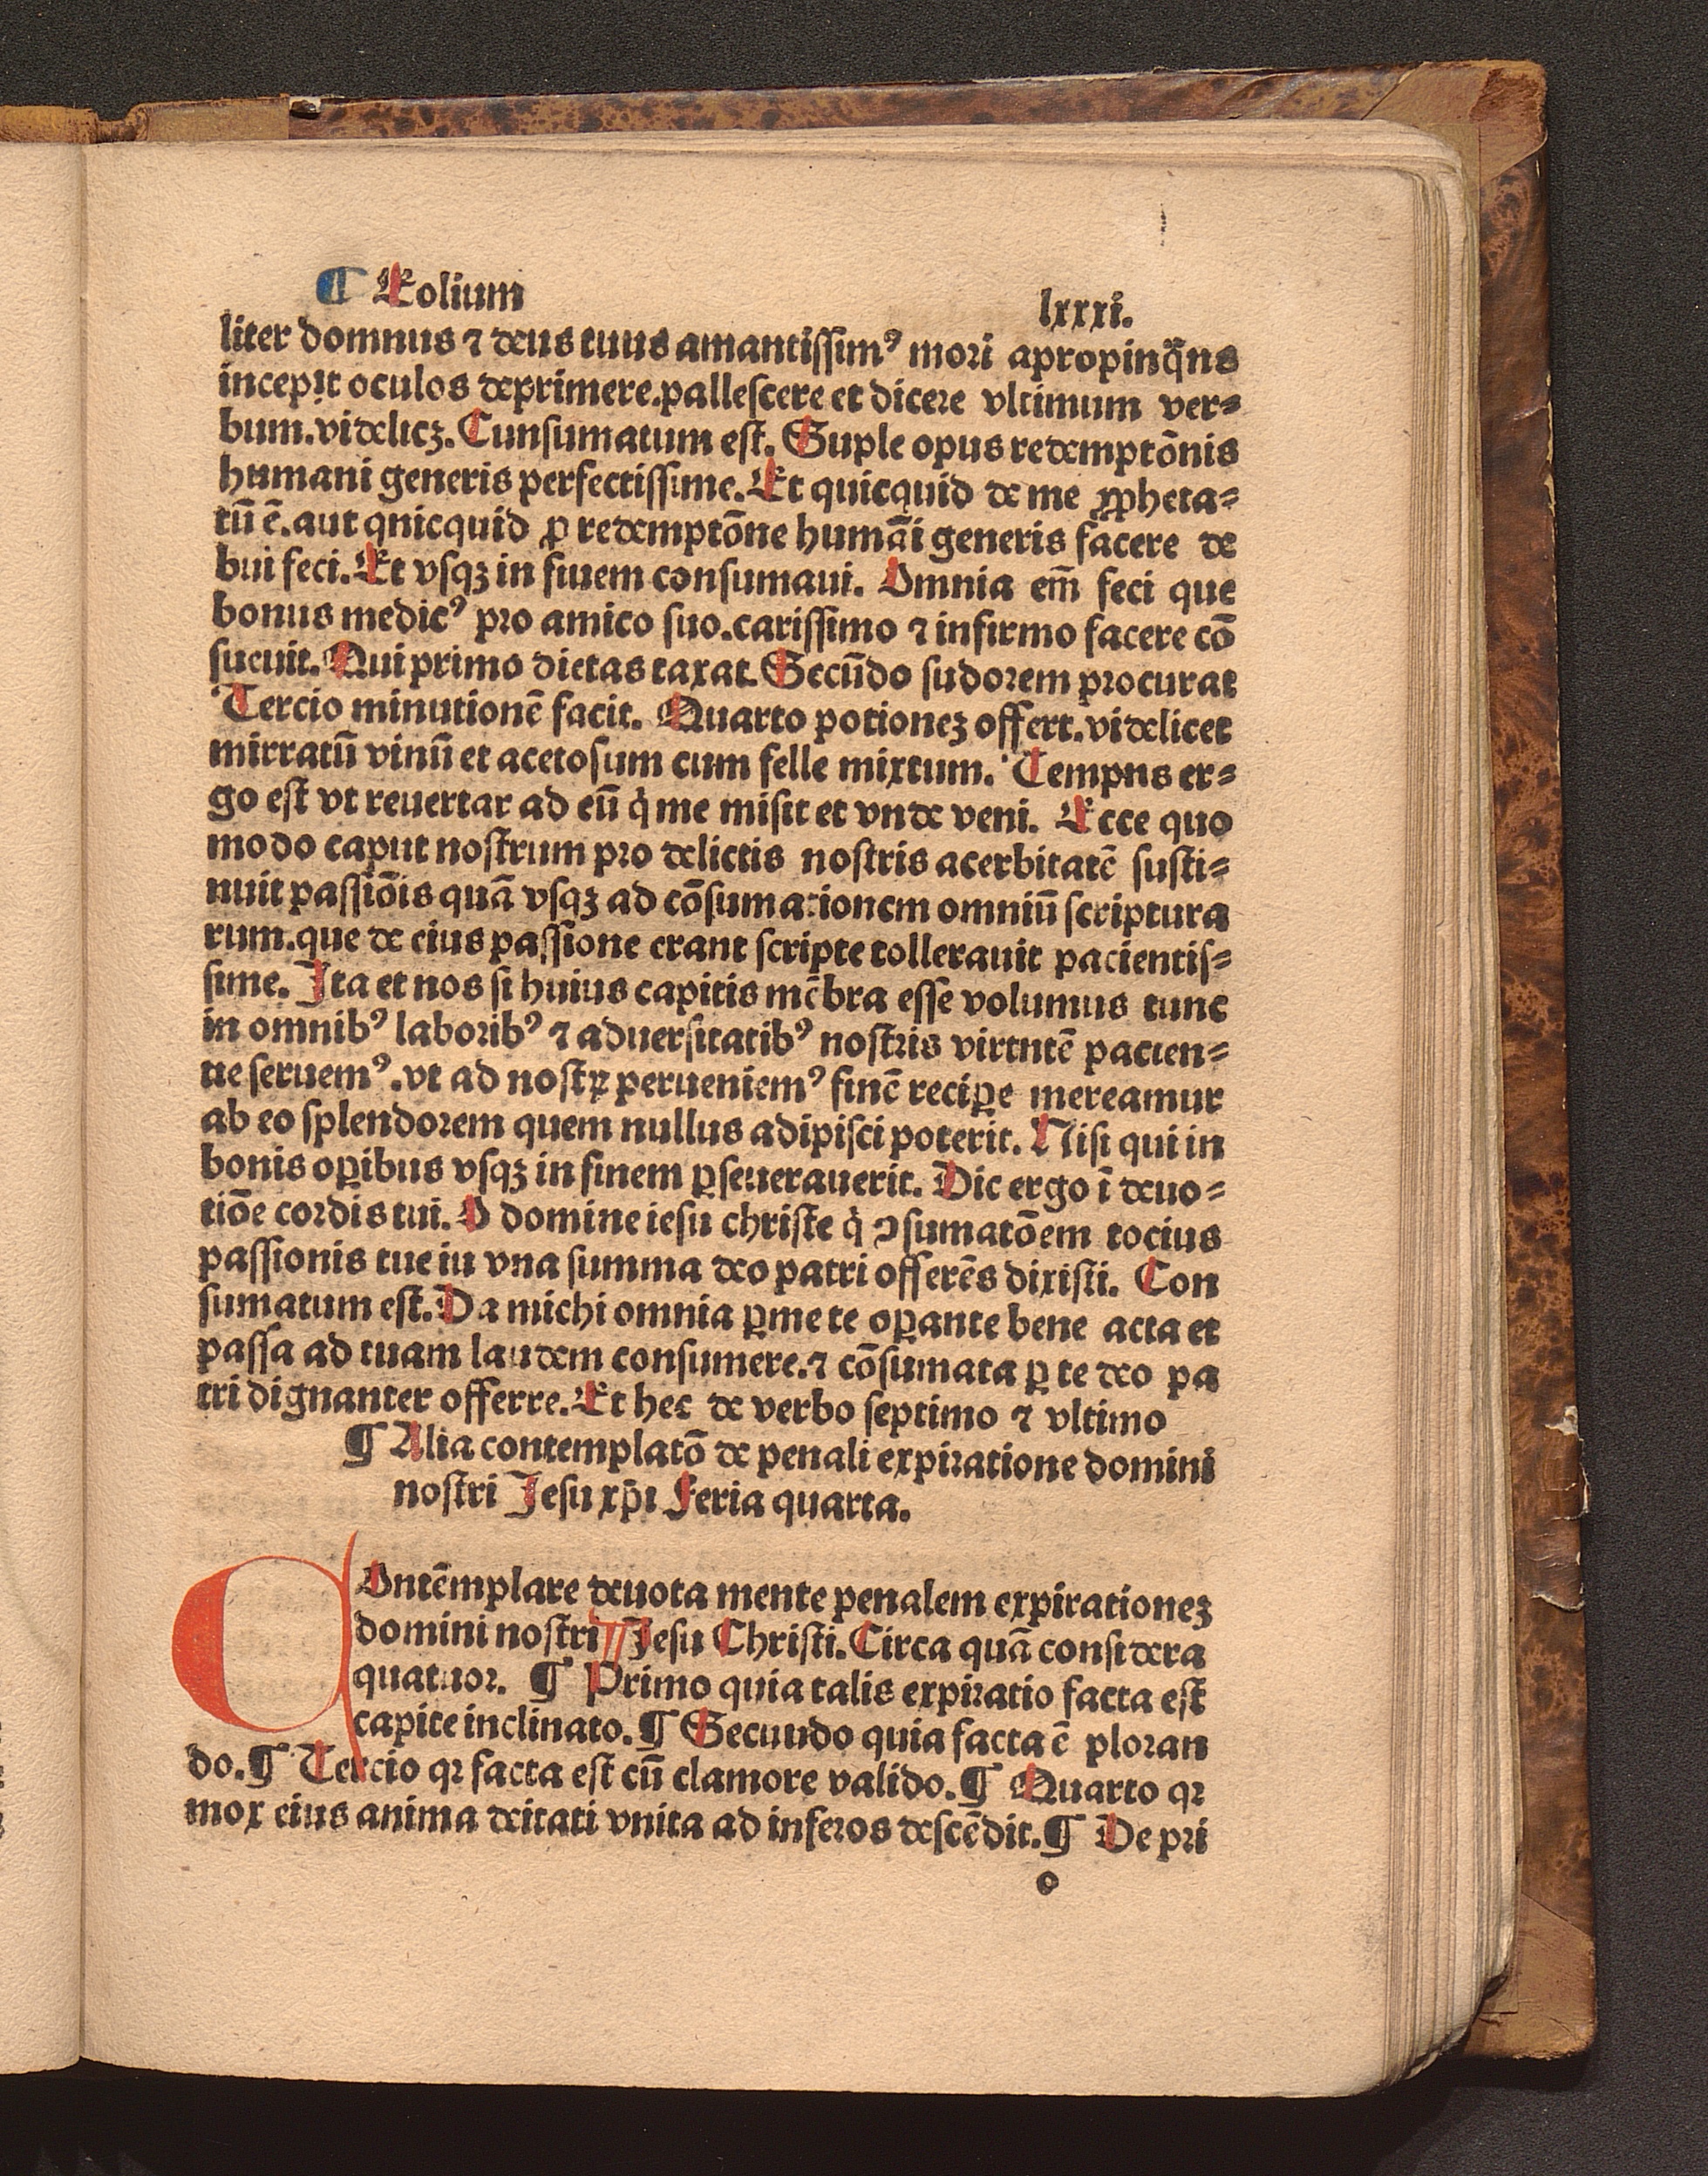 ¶ Eolium lxxxi.
liter domnus ⁊ deus tuus amantiſſimꝰ mori apropinq̃ns
incepit oculos deprimere.palleſcere et dicere vltimum ver⸗
bum.videlicꝫ. Cunſumatum eſt. Suple opus redemptõnis
humani generis perfectiſſime. Et quicquid de me ꝓpheta⸗
tũ ẽ.aut qnicquid ꝓ redemptõne humãi generis facere de
bui feci. Et vſqꝫ in finem conſumaui. Omnia em̃ feci que
bonus medicꝰ pro amico ſuo.cariſſimo ⁊ infirmo facere cõ
ſueuit. Qui primo dietas taxat. Secũdo ſudorem procurat
Tercio minutionẽ facit. Quarto potioneꝫ offert.videlicet
mirratũ vinũ et acetoſum cum felle mixtum. Tempns er⸗
go eſt vt reuertar ad eũ qͥ me miſit et vnde veni. Ecce quo
modo caput noſtrum pro delictis noſtris acerbitatẽ ſuſti⸗
nuit paſſiõis quã vſqꝫ ad cõſumationem omniũ ſcriptura
rum.que de eius paſſione erant ſcripte tollerauit pacientiſ⸗
ſime. Ita et nos ſi huius capitis mẽbra eſſe volumus tunc
in omnibꝰ laboribꝰ ⁊ aduerſitatibꝰ noſtris virtntẽ pacien⸗
tie ſeruemꝰ.vt ad noſtꝝ perueniemꝰ finẽ reciꝑe mereamur
ab eo ſplendorem quem nullus adipiſci poterit. Niſi qui in
bonis oꝑibus vſqꝫ in finem ꝑſeuerauerit. Dic ergo ĩ deuo⸗
tiõe cordis tui. O domine ieſu chriſte qͥ ꝯſumatõem tocius
paſſionis tue iu vna ſumma deo patri offerẽs dixiſti. Con
ſumatum eſt. Da michi omnia ꝑ me te oꝑante bene acta et
paſſa ad tuam laudem conſumere.⁊ cõſumata ꝑ te deo pa
tri dignanter offerre. Et hec de verbo ſeptimo ⁊ vltimo
¶ Alia contemplatõ de penali expiratione domini
noſtri Jeſu xp̃i Feria quarta.
COntẽmplare deuota mente penalem expirationeꝫ
domini noſtri Jeſu Chriſti. Circa quã conſidera
quatuor. ¶ Primo quia talis expiratio facta eſt
capite inclinato. ¶ Secundo quia facta ẽ ploran
do. ¶ Tercio qꝛ facta eſt cũ clamore valido. ¶ Quarto qꝛ
mox eius anima deitati vnita ad inferos deſcẽdit. ¶ De pri
o